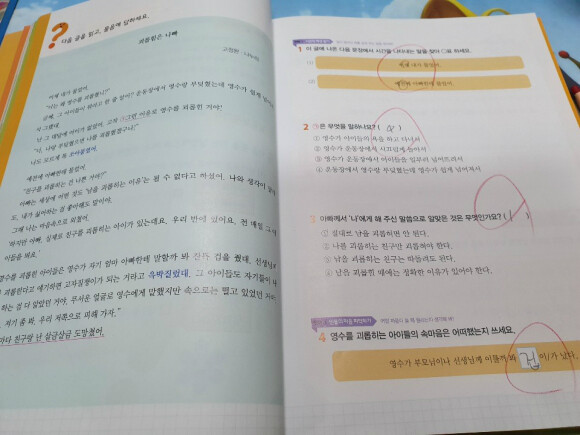 다음 글을 읽고, 물음에 답하세요.
괴롭힘은 나빠
고정완
어제 내가 물었어.
"너는 왜 영수를 괴롭혔니?"
운동장에서 영수랑 부딪혔는데 영수가
서 그랬대.
난 그 대답에 어이가 없었어. 고작 그런 이유로 영수를 괴롭힌 거야?
나도 모르게 톡 쏘아붙였어.
예전에 아빠한테 물었어.
"친구를 괴롭히는 건 나쁜 거야?"
아빠는 세상에 어떤 것도 '남을 괴롭히는 이유'는 될 수 없다고 하셨어. 나와 생각이
도, 내가 싫어하는 걸 좋아해도 말이야.
그때 나는 마음속으로 외쳤어.
'하지만 아빠, 실제로 친구를 괴롭히는 아이가 있는데요. 우리 반에 있어요. 전 매일 그
이들을 봐요.'
영수를 괴롭힌 아이들은 영수가 자기 엄마 아빠한테 말할까 봐 잔뜩 겁을 줬대. 선생님
괴롭힌다고 얘기하면 고자질쟁이가 되는 거라고 윽박질렀대. 그 아이들도 자기들이
하는 걸 다 알았던 거야. 무서운 얼굴로 영수에게 말했지만 속으로는 떨고 있었던 거야
저기 좀 봐, 우리 저쪽으로 피해 가자."
마다 친구랑 난 살금살금 도망쳤어.
1 이 글에 나온 다음 문장에서 시간을 나타내는 말을 찾아 ○표 하세요.
(1) 어제 내가 물었어.
(2) 예전에 아빠한테 물었어.
2 ㉠은 무엇을 말하나요? ( 4 )
① 영수가 아이들의 욕을 하고 다녀서
② 영수가 운동장에서 시끄럽게 놀아서
③ 영수가 운동장에서 아이들을 일부러 넘어뜨려서
④ 운동장에서 영수랑 부딪혔는데 영수가 쉽게 넘어져서
3 아빠께서 '나'에게 해 주신 말씀으로 알맞은 것은 무엇인가요? ( 1 )
① 절대로 남을 괴롭히면 안 된다.
② 나를 괴롭히는 친구만 괴롭혀야 한다.
③ 남을 괴롭히는 친구는 따돌려도 된다.
④ 남을 괴롭힐 때에는 정확한 이유가 있어야 한다.
4 영수를 괴롭히는 아이들의 속마음은 어떠했는지 쓰세요.
영수가 부모님이나 선생님께 이를까 봐 겁 이/가 났다.